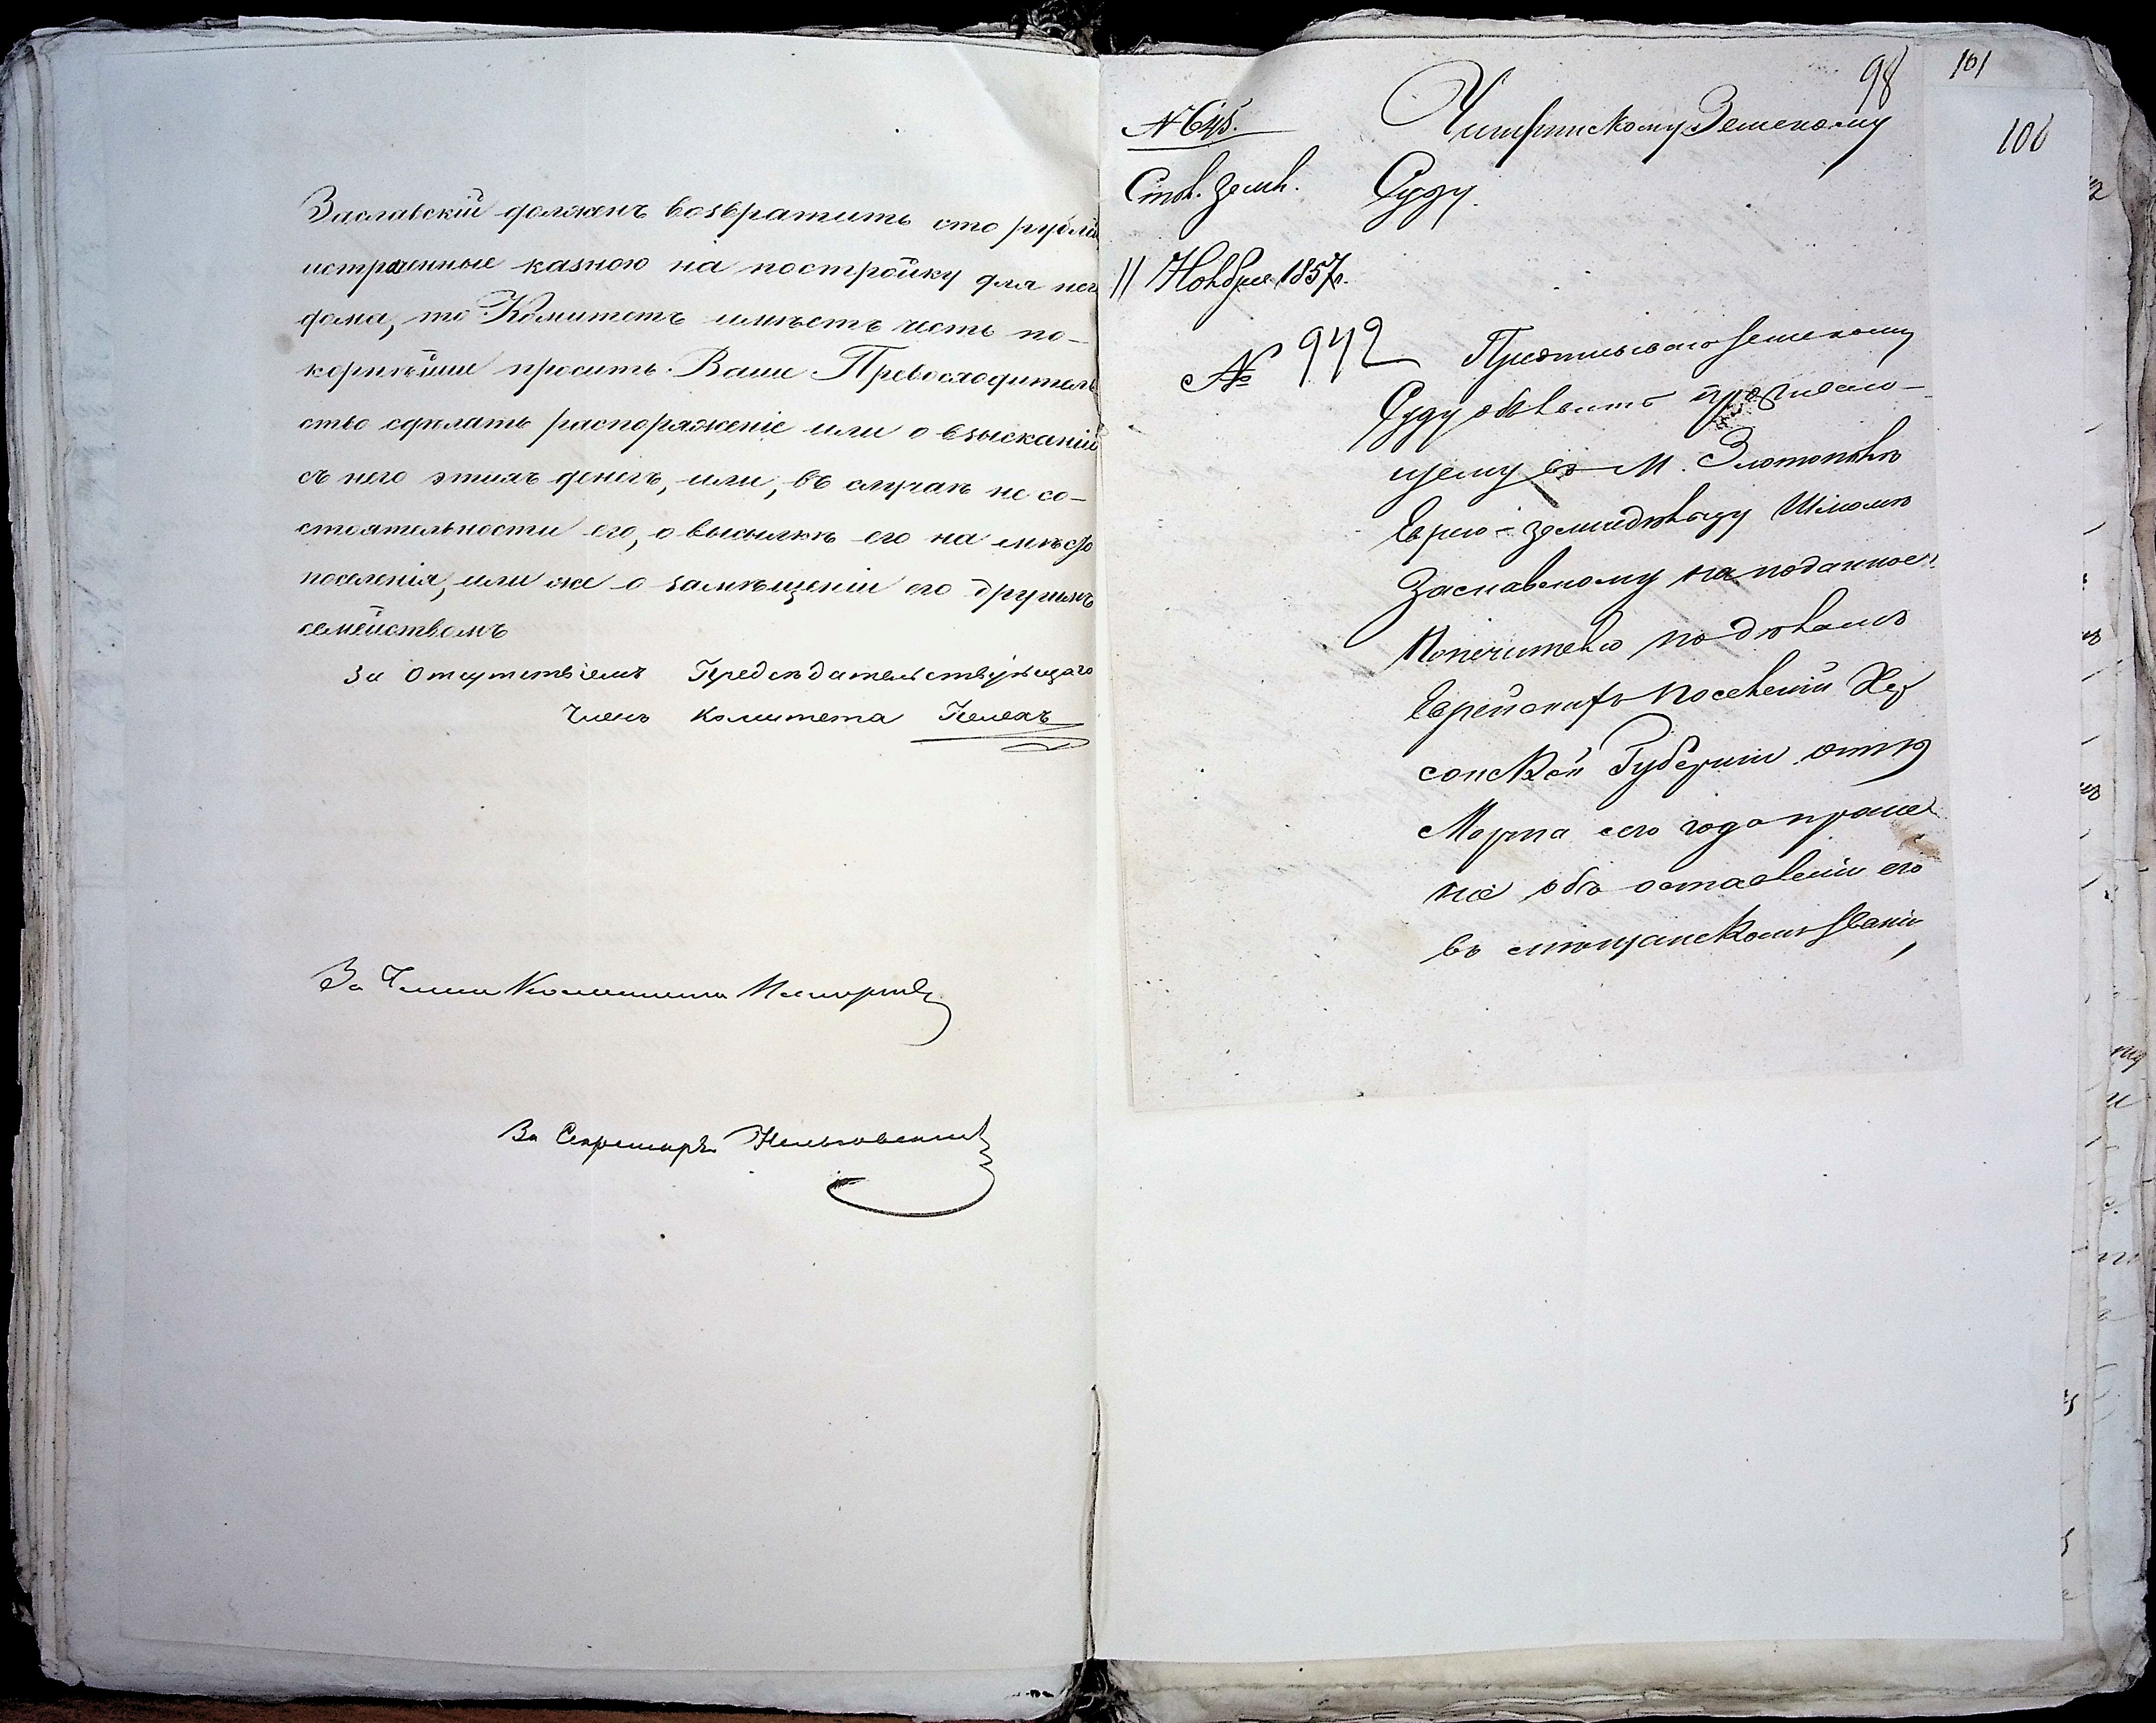 Заславскій долженъ возвратить сто рублей
истраченные казною на постройку для него
дома, то Комитетъ имѣетъ честь по-
корнѣйше просить Ваше Превосходитель
ство сдѣлать распоряженіе или о взысканіи
съ него этихъ денегъ, или, въ случаѣ не со-
стоятельности его, о высылкѣ его на мѣсто
поселенія, или же о замѣщеніи его другимъ
семействомъ
За Отсутствіемъ Предсѣдательствующаго
Членъ Комитета
За Члена Комитета
За Секретаря
98
101
100
№ 645.
Стол. земл.
11 Ноября 1857г.
№ 942
Чигиринскому Земскому
Суду.
Предписываю Земскому
Суду объявить проживаю-
щему въ М. Златополѣ
Еврею-земледѣльцу Шлиомѣ
Заславскому на поданное
Попечителю по дѣламъ
Еврейскихъ поселеній Хер
сонской Губерніи отъ 19
Марта сего года проше
ніе объ оставленіи его
въ мѣщанскомъ званіи,